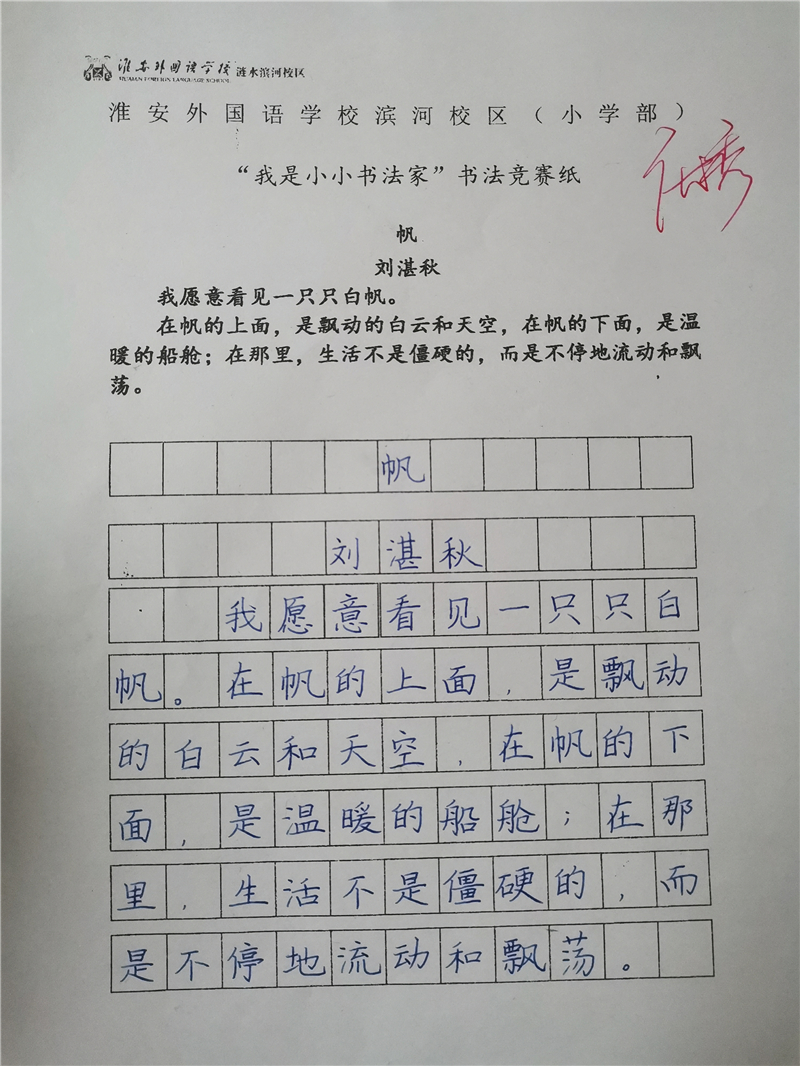 淮安外国语学校 涟水滨河校区
HUAIAN FOREIGN LANGUAGE SCHOOL
淮安外国语学校滨河校区（小学部）
“我是小小书法家”书法竞赛纸
优秀
帆
刘湛秋
我愿意看见一只只白帆。
在帆的上面，是飘动的白云和天空，在帆的下面，是温
暖的船舱；在那里，生活不是僵硬的，而是不停地流动和飘
荡。
帆
刘湛秋
我愿意看见一只只白
帆。在帆的上面，是飘动
的白云和天空，在帆的下
面，是温暖的船舱；在那
里，生活不是僵硬的，而
是不停地流动和飘荡。